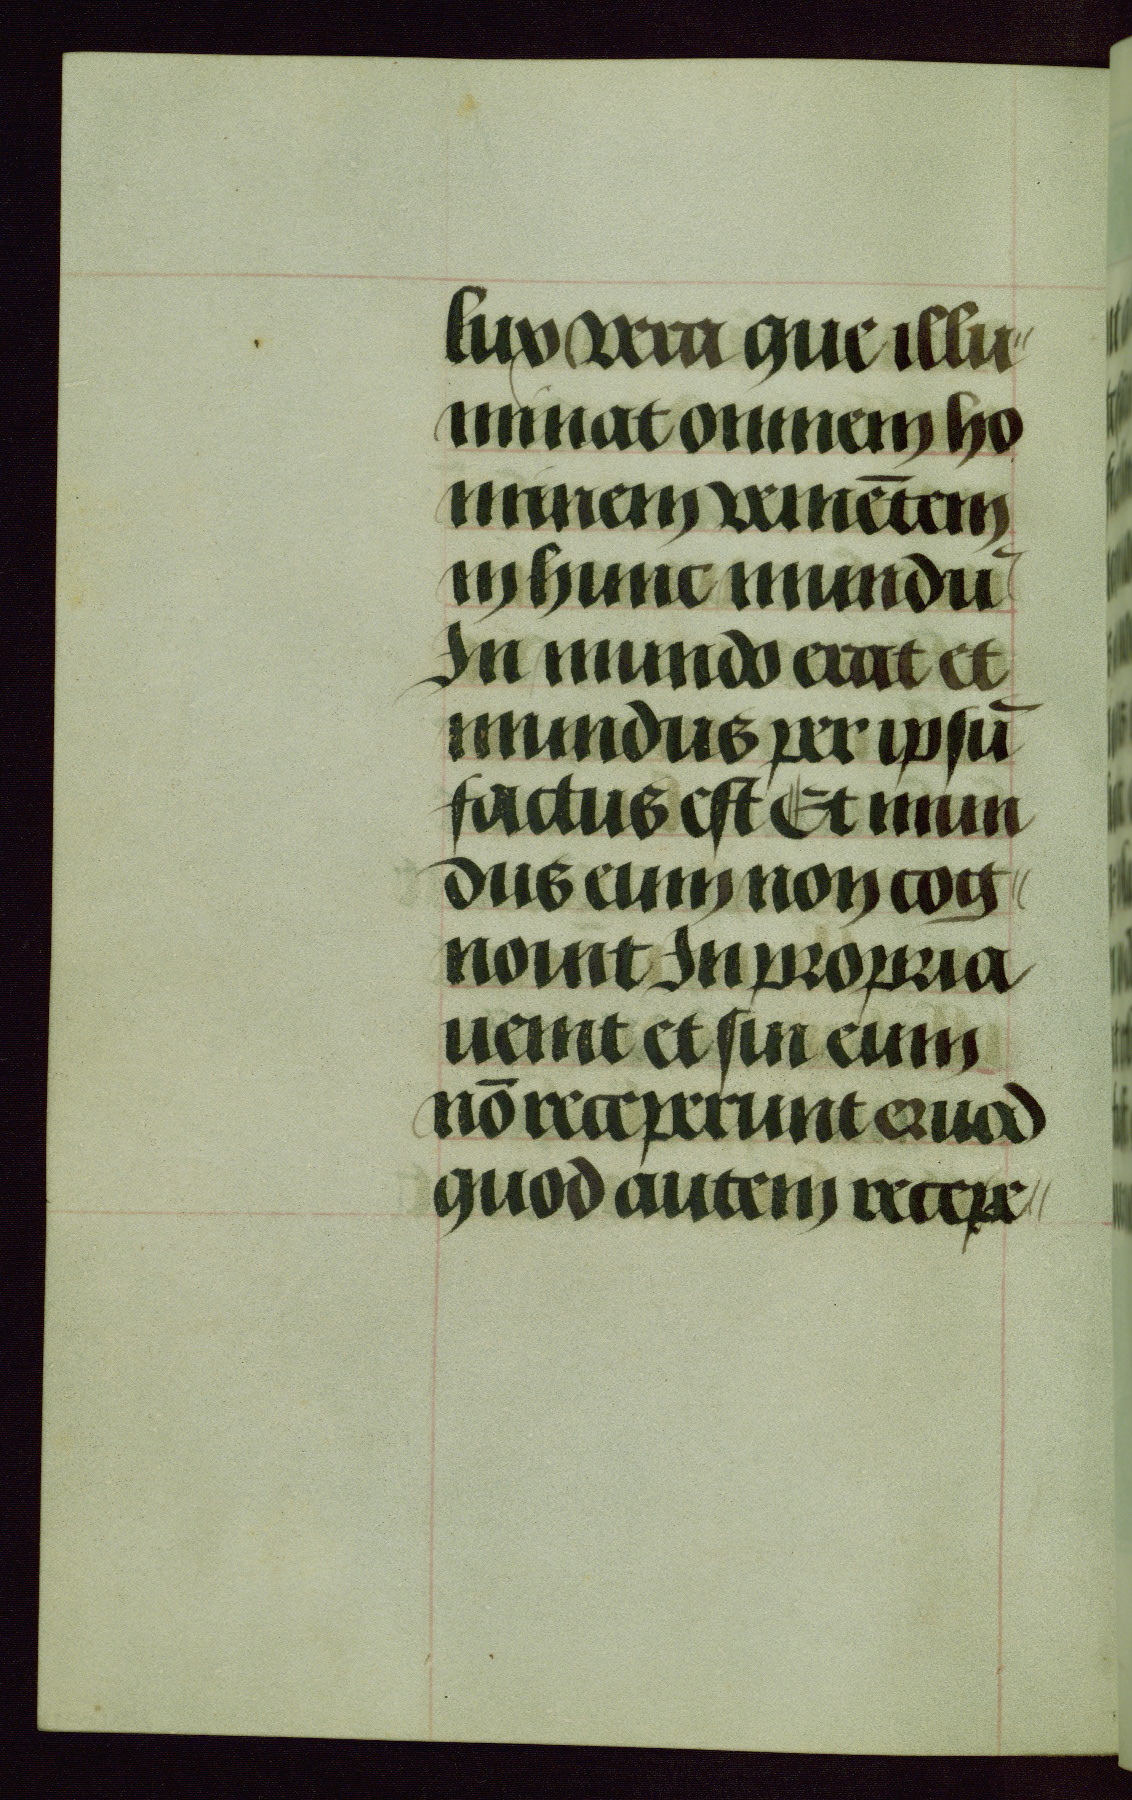 lux vera que illu-
minat omnem ho
minem veniētem
in hunc mundū
In mundo erat et
mundus per ipsū
factus est Et mun
dus eum non cog-
nouit In propria
uenit et sui eum
nō receperunt
quod autem recepe-